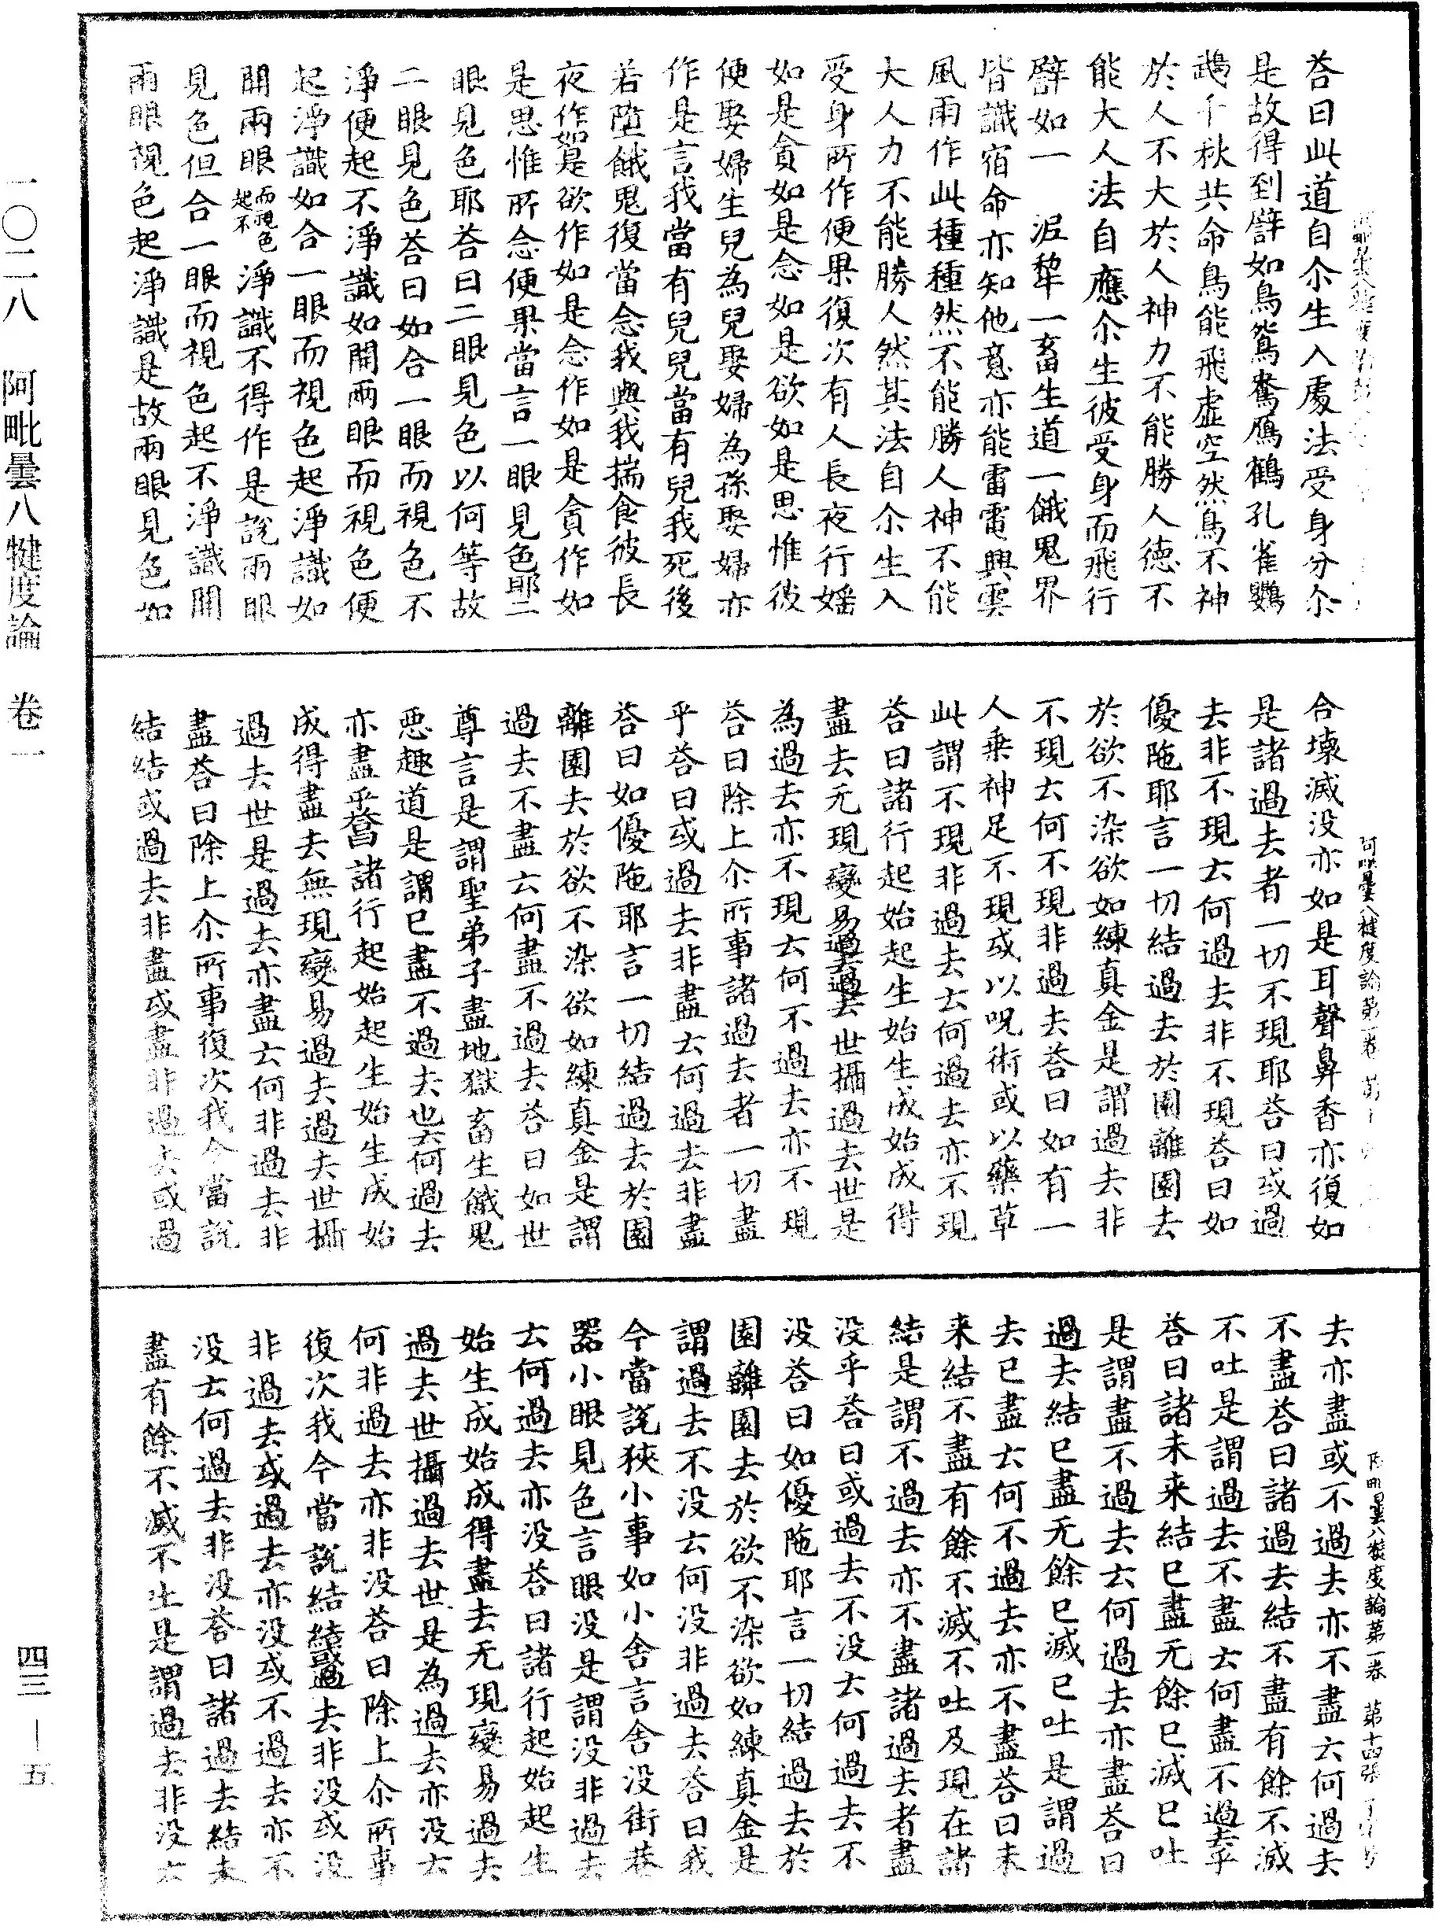 答曰此道自尒生入處法受身分尒
是故得到譬如鳥鴛鴦鴈鶴孔雀鸚
鵡千秋共命鳥能飛虛空然鳥不神
於人不大於人神力不能勝人德不
能大人法自應尒生彼受身而飛行
譬如一泥犂一畜生道一餓鬼界
皆識宿命亦知他意亦能雷電興雲
風雨作此種種然不能勝人神不能
大人力不能勝人然其法自尒生入
受身所作便果復次有人長夜行婬
如是貪如是念如是欲如是思惟彼
便娶婦生兒為兒娶婦為孫娶婦亦
作是言我當有兒兒當有兒我死後
若墮餓鬼復當念我與我揣食彼長
夜作如是欲作如是念作如是貪作如
是思惟所念便果當言一眼見色耶二
眼見色耶答曰二眼見色以何等故
二眼見色答曰如合一眼而視色不
淨便起不淨識如開兩眼而視色便
起淨識如合一眼而視色起淨識如
開兩眼而視色起不淨識不得作是說兩眼
見色但合一眼而視色起不淨識開
兩眼視色起淨識是故兩眼見色如
合壞滅没亦如是耳聲鼻香亦復如
是諸過去者一切不現耶答曰或過
去非不現云何過去非不現答曰如
優陁耶言一切結過去於園離園去
於欲不染欲如練真金是謂過去非
不現云何不現非過去答曰如有一
人乗神足不現或以呪術或以藥草
此謂不現非過去云何過去亦不現
答曰諸行起始起生始生成始成得
盡去无現變易過去過去世攝過去世是
為過去亦不現云何不過去亦不現
答曰除上尒所事諸過去者一切盡
乎答曰或過去非盡云何過去非盡
答曰如優陁耶言一切結過去於園
離園去於欲不染欲如練真金是謂
過去不盡云何盡不過去答曰如世
尊言是謂聖弟子盡地獄畜生餓鬼
惡趣道是謂已盡不過去也云何過去
亦盡乎答曰諸行起始起生始生成始
成得盡去無現變易過去過去世攝
過去世是過去亦盡云何非過去非
盡答曰除上尒所事復次我今當說
結結或過去非盡或盡非過去或過
去亦盡或不過去亦不盡云何過去
不盡答曰諸過去結不盡有餘不滅
不吐是謂過去不盡云何盡不過去乎
答曰諸未来結已盡无餘已滅已吐
是謂盡不過去云何過去亦盡答曰
過去結已盡无餘已滅已吐是謂過
去已盡云何不過去亦不盡答曰未
来結不盡有餘不滅不吐及現在諸
結是謂不過去亦不盡諸過去者盡
没乎答曰或過去不没云何過去不
没答曰如優陁耶言一切結過去於
園離園去於欲不染欲如練真金是
謂過去不没云何没非過去答曰我
今當說狹小事如小舍言舍没街巷
器小眼見色言眼没是謂没非過去
云何過去亦没答曰諸行起始起生
始生成始成得盡去无現變易過去
過去世攝過去世是為過去亦没云
何非過去亦非没答曰除上尒所事
復次我今當說結結或過去非没或没
非過去或過去亦没或不過去亦不
没云何過去非没答曰諸過去結未
盡有餘不滅不吐是謂過去非没云
阿毗曇八犍度論第一卷
阿毗曇八犍度論第一卷 第十四張
一〇二八 阿毗曇八犍度論 卷一
四三—五